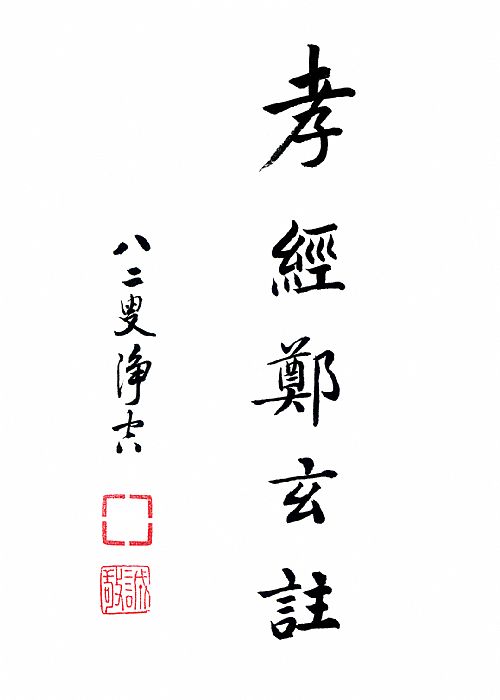 孝經鄭玄註
八二叟淨空
誠敬